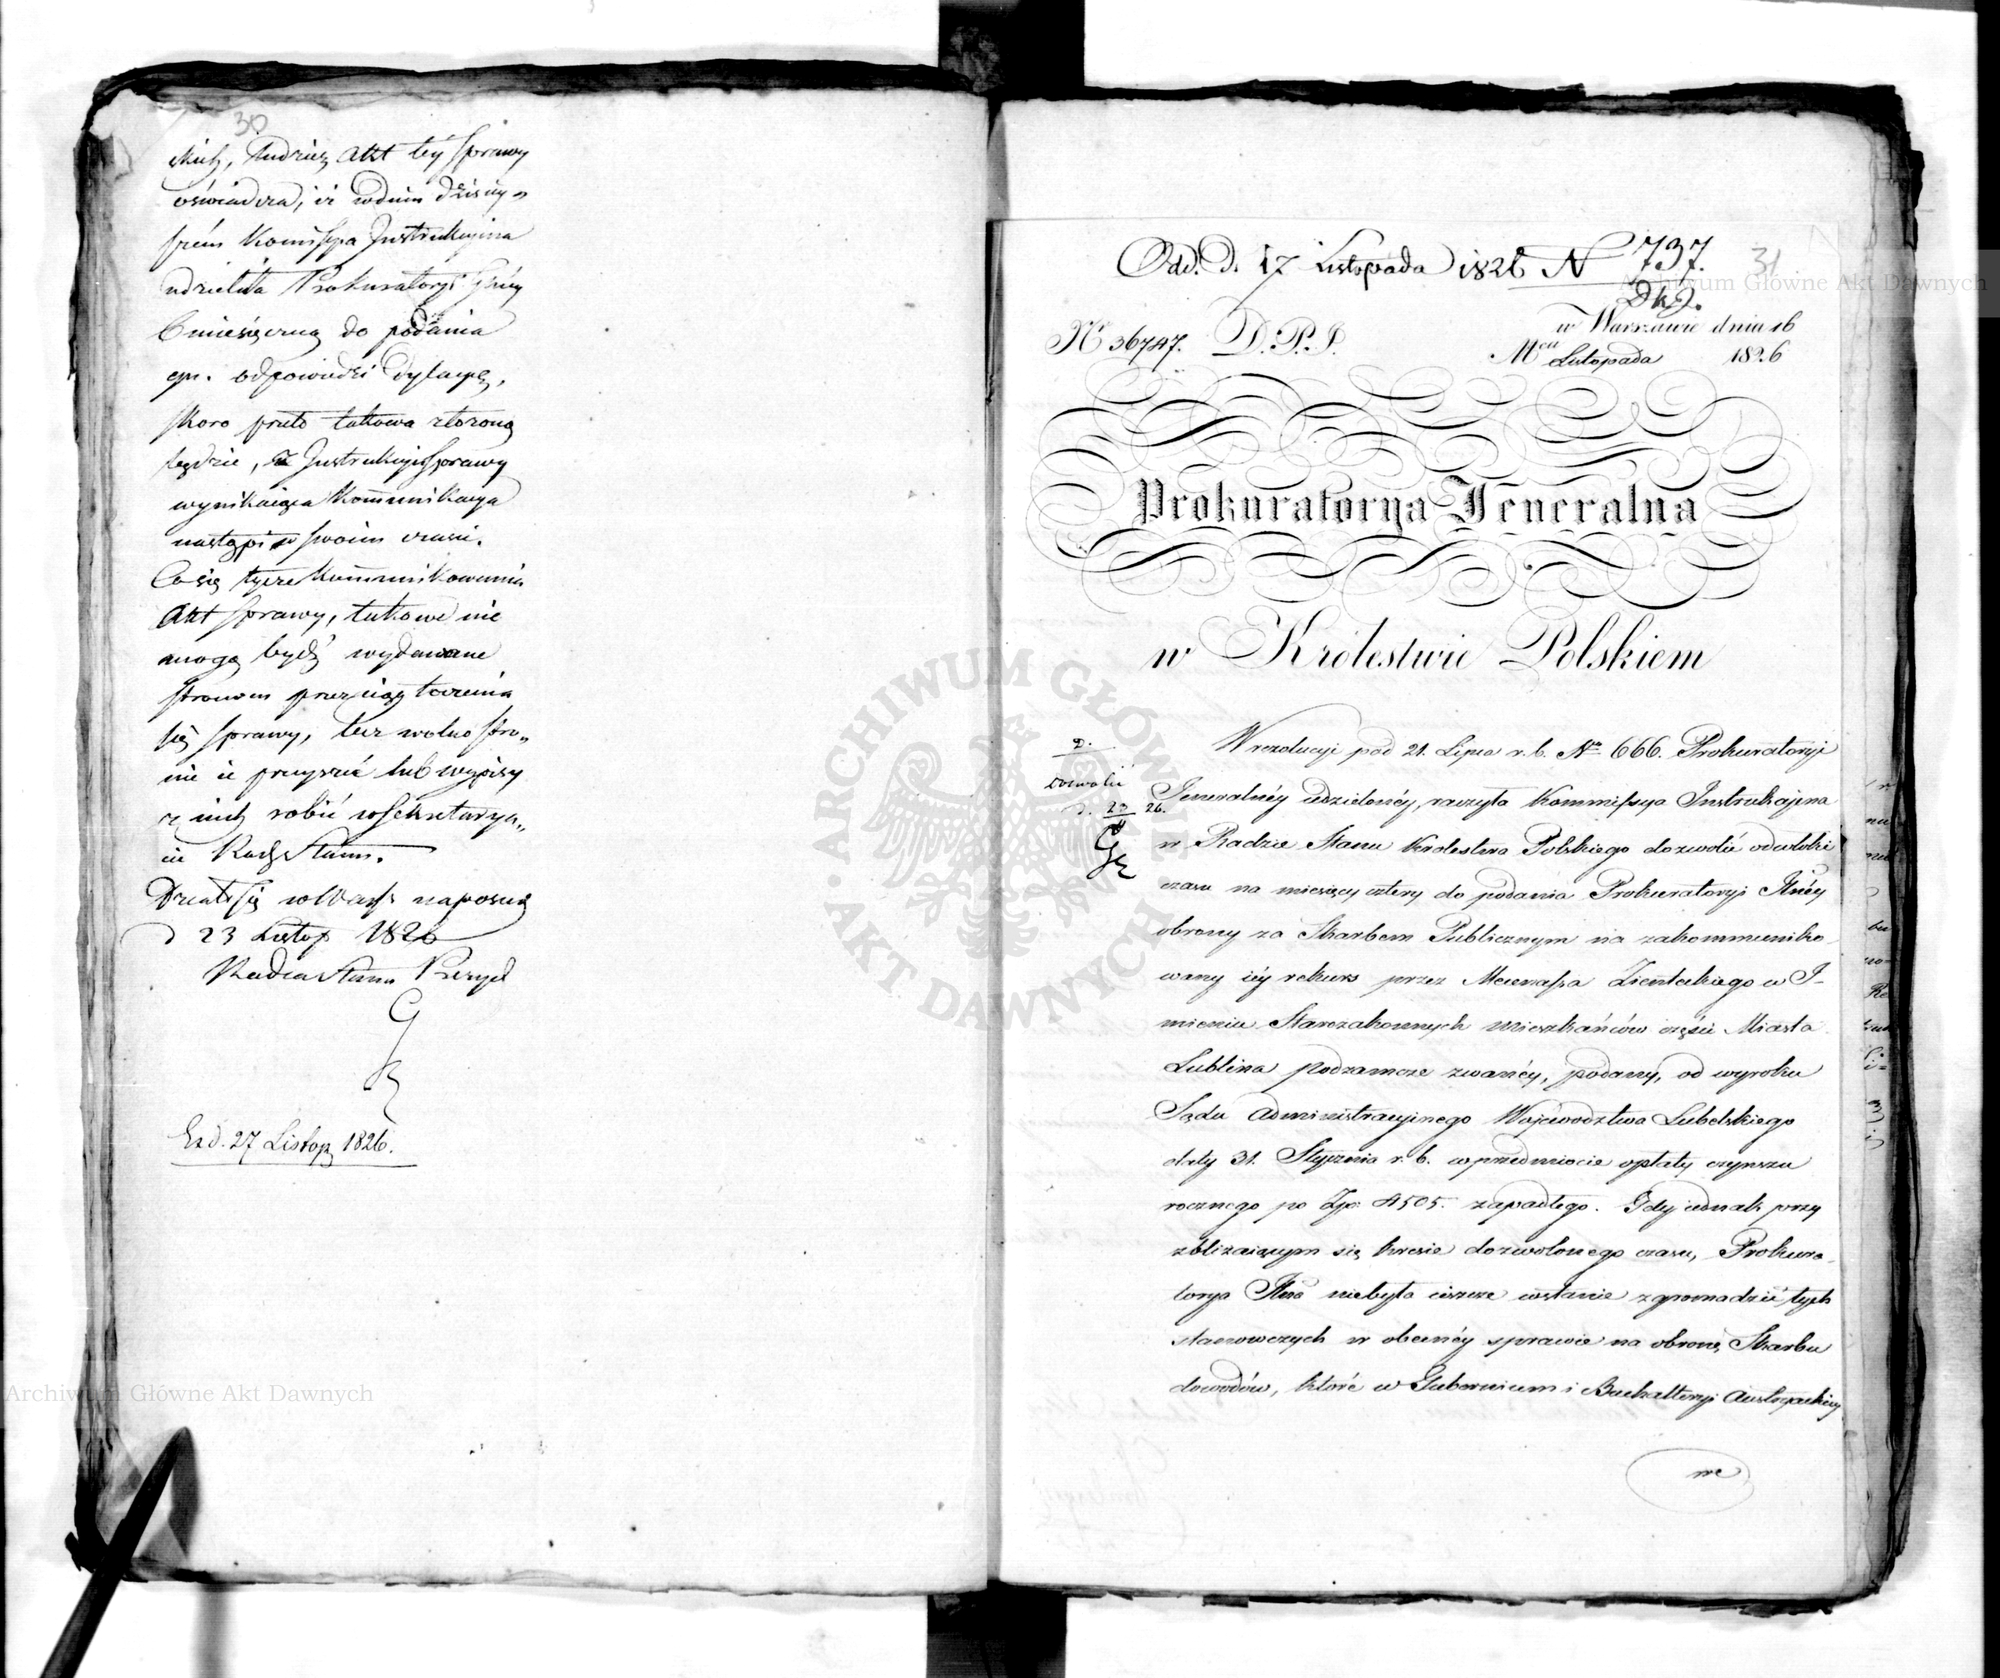 30
skich, tudzież Akt tey sprawy
oświadcza, iż w dniu dzisiey„
szém Kommissya Instrukcyina
udzieliła Prokuratoryi Jłnéy
6 miesięczną do podania
odpowiedzi dylacyę,
skoro przeto takowa złożoną
będzie, z Instrukcyi sprawy
wynikaiąca Kommunikacya
nastąpi w swoim czasie.
Co się tycze Kommunikowania
Akt sprawy, takowe nie
mogą bydź wydawane
stronom przez ciąg toczenia
się sprawy, lecz wolno stro„
nie ie przeyrzeć lub wypisy
z nich robić w Sekretarya„
cie Rady Stanu.
Działo się w Warsz. na posied.
d 23 Listop 1826
Radca Stanu Prezyd
Exd. 27 Listop 1826.
Odd. d. 17 Listopada 1826 N 737.
31
DkJ.
Nº 36747. D.P.I.
w Warszawie dnia 16
Mca Listopada 1826
Prokuratorya Jeneralna
w Królestwie Polskiem
D.
dozwolić
d. 23 26.
W rezolucyi pod 21. Lipca r. b. Nro 666. Prokuratoryi
Jeneralnéy udzielonéy, raczyła Kommissya Instrukcyjna
w Radzie Stanu Królestwa Polskiego dozwolić odwłoki
czasu na miesięcy cztery do podania Prokuratoryi Jłnéy
obrony za Skarbem Publicznym na zakommuniko-
wany iéy rekurs przez Mecenassa Zienteckiego w I-
mieniu Starozakonnych mieszkańców części Miasta
Lublina Podzamcze zwanéy, podany, od wyroku
Sądu Administracyjnego Województwa Lubelskiego
daty 31. Stycznia r. b. w przedmiocie opłaty czynszu
rocznego po Złp: 4505. zapadłego. Gdy jednak przy
zbliżaiącym się kresie dozwolonego czasu, Prokura-
torya Jłna niebyła ieszcze wstanie zgromadzić tych
stanowczych w obecnéy sprawie na obronę Skarbu
dowodów, które w Gubernium i Buchalteryi Austryackiéy
Archiwum Główne Akt Dawnych
Archiwum Główne Akt Dawnych
ARCHIWUM GŁÓWNE · AKT DAWNYCH ·